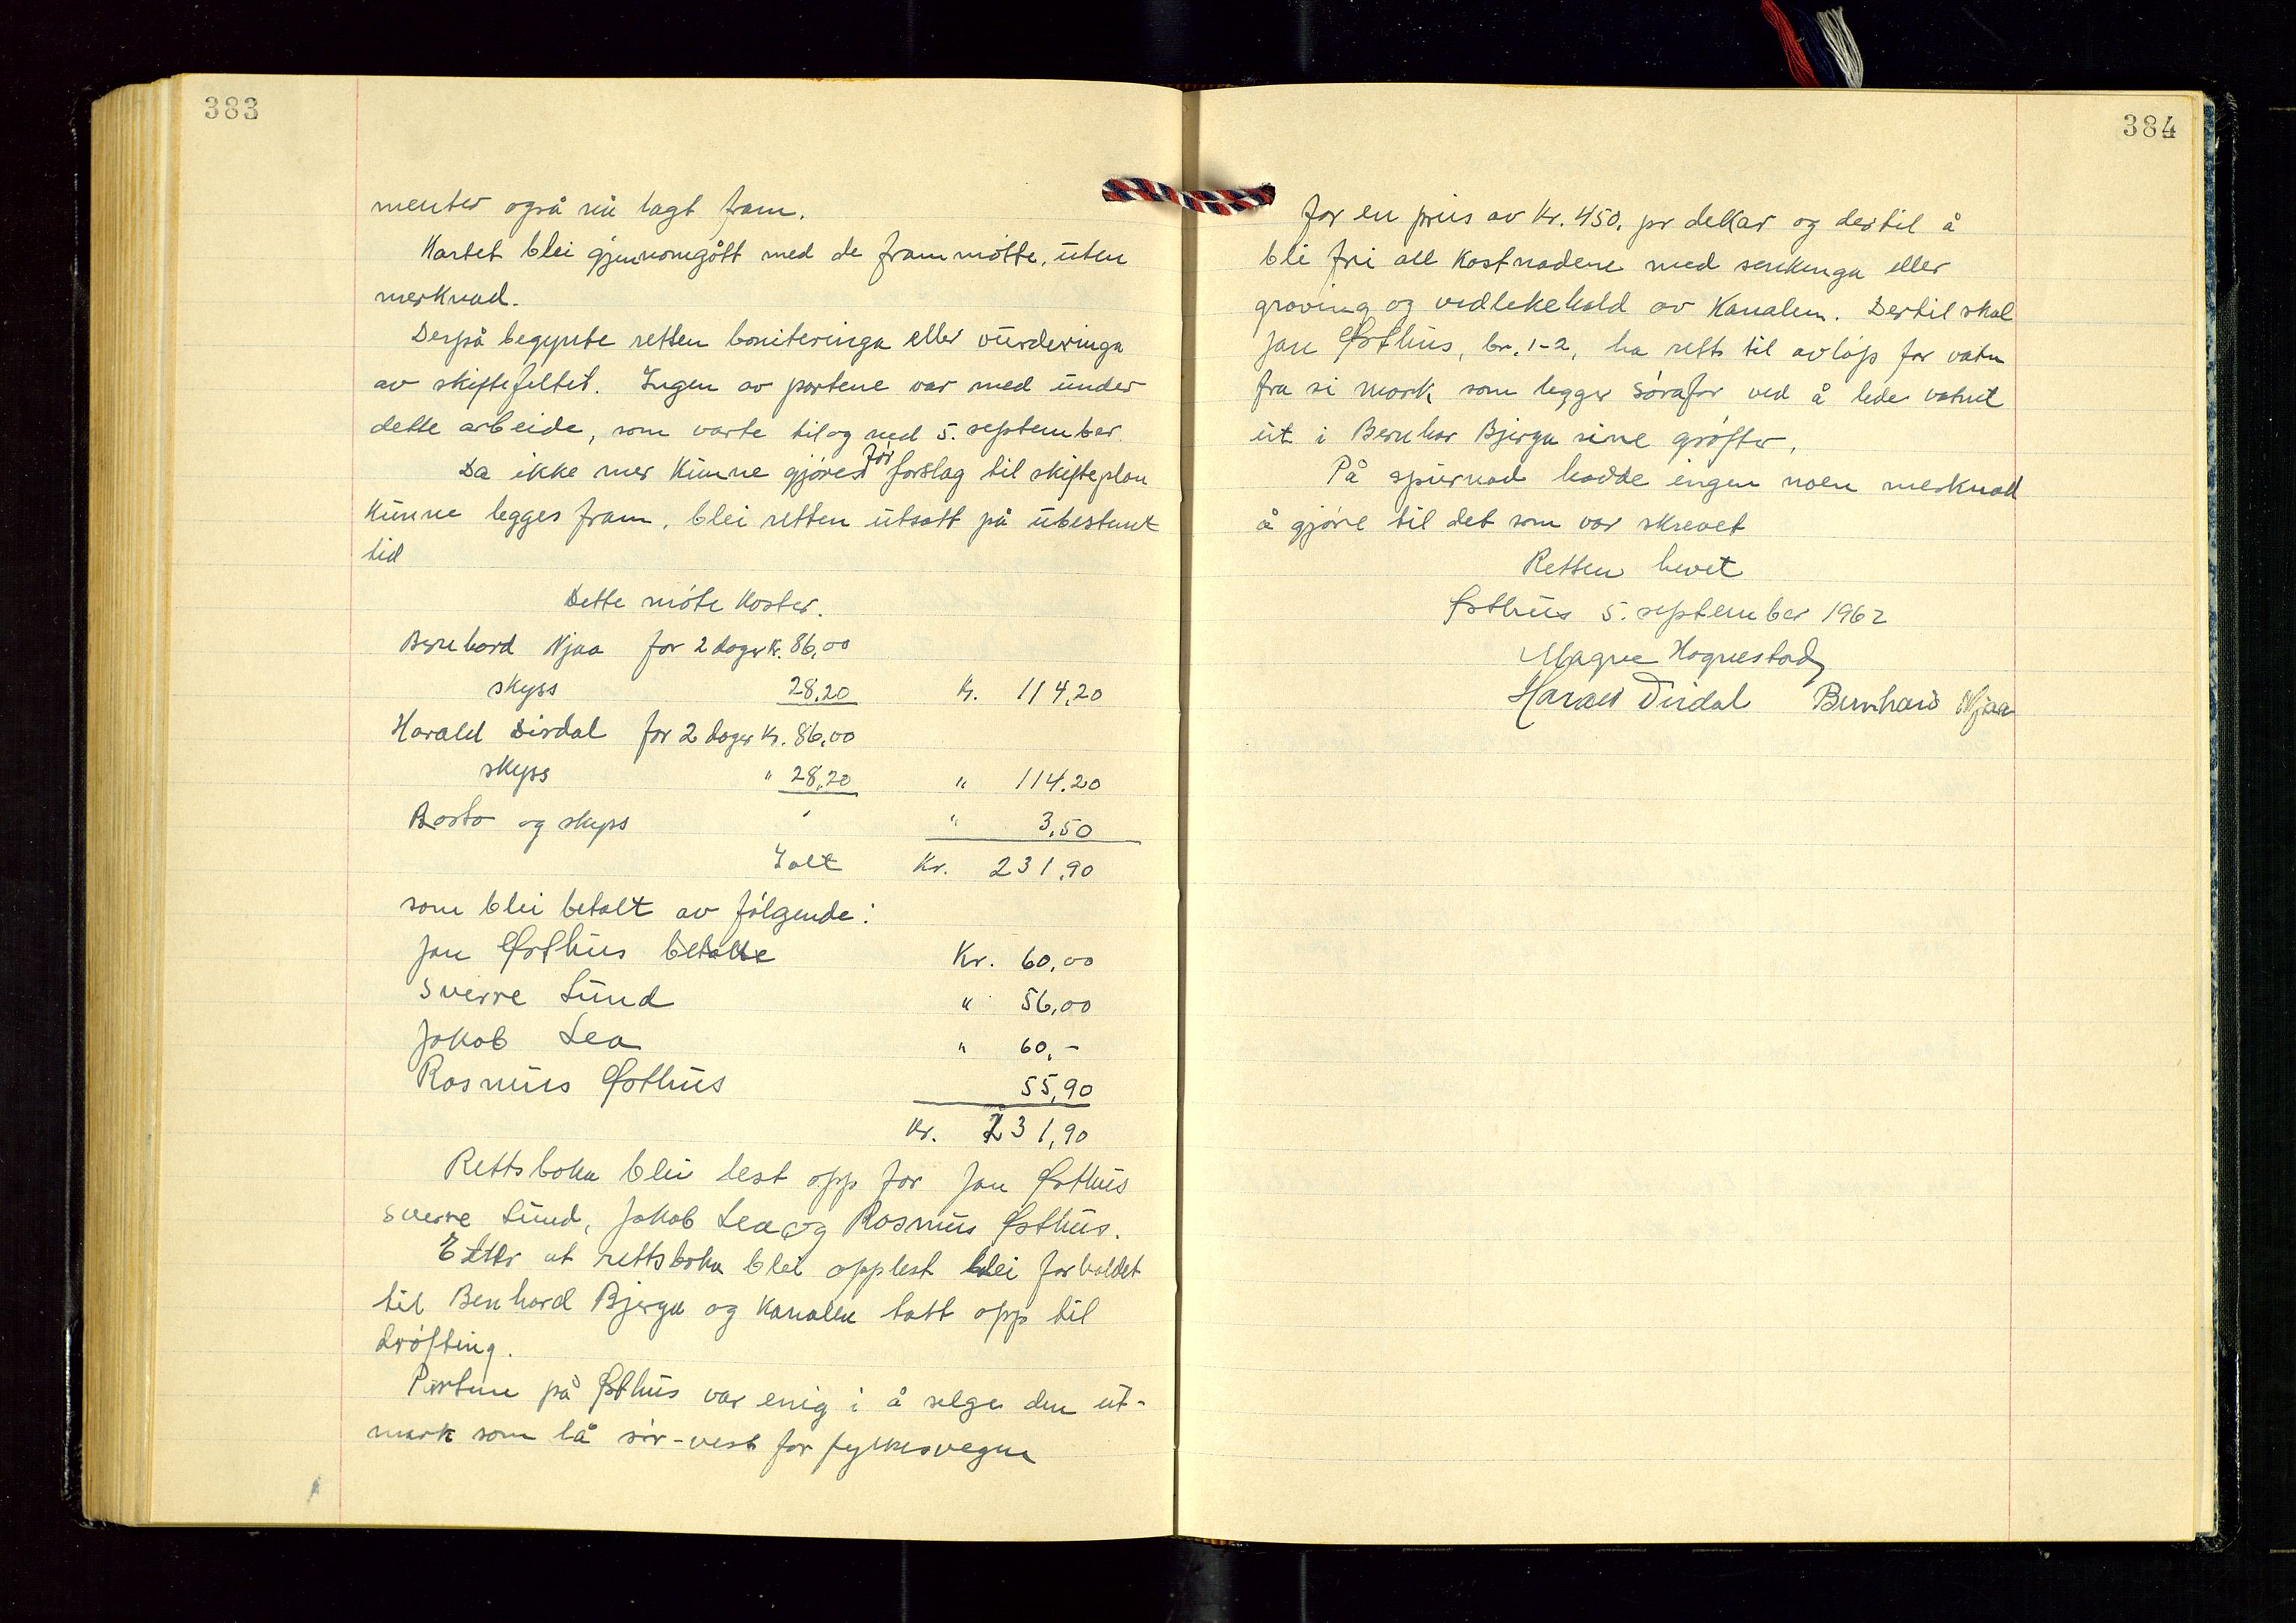 383
menter også nu lagt fram.
Kartet blei gjennomgått med de frammøtte, uten
merknad.
Derpå begynte retten boniteringa eller vurderinga
av skiftefeltet. Ingen av partene var med under
dette arbeide, som varte til og med 5. september.
Da ikke mer kunne gjøres før forslag til skifteplan
kunne legges fram, blei retten utsatt på ubestemt
tid
Dette møte koster.
Bernhard Njaa for 2 dager kr. 86,00
skyss 28,20 kr. 114,20
Harald Dirdal for 2 dager kr. 86,00
skyss " 28,20 " 114.20
Porto og skyss " 3,50
Ialt Kr. 231,90
som blei betalt av følgende:
Jan Østhus betalte Kr. 60,00
Sverre Lund " 56,00
Jakob Lea " 60,-
Rasmus Østhus 55,90
Kr. 231,90
Rettsboka blei lest opp for Jan Østhus
Sverre Lund, Jakob Lea og Rasmus Østhus.
Etter at rettsboka blei opplest blei forholdet
til Benhard Bjerga og kanalen tatt opp til
drøfting.
Partene på Østhus var enig i å selge den ut-
mark som lå sør-vest for fylkesvegen
384
for en pris av Kr. 450, pr dekar og dertil å
bli fri all kostnadene med senkinga eller
graving og vedlikehold av kanalen. Dertil skal
Jan Østhus, br. 1-2, ha retts til avløp for vatn
fra si mark som legger sørafor ved å lede vatnet
ut i Bernhar Bjerga sine grøfter.
På spurnad hadde ingen noen merknad
å gjøre til det som var skrevet
Retten hevet
Østhus 5. september 1962
Magne Hognestad
Harald Dirdal Bernhard Njaa